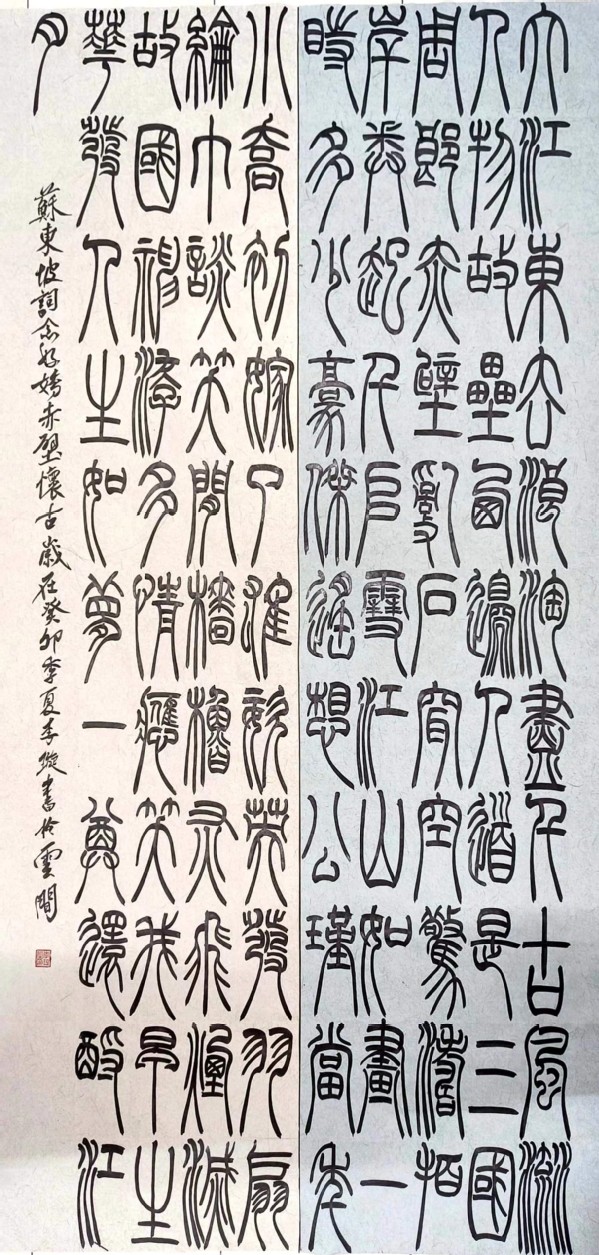 大江東去浪淘盡千古風流
人物故壘西邊人道是三國
周郎赤壁亂石穿空驚濤拍
岸卷起千堆雪江山如畫一
時多少豪傑遙想公瑾當年
小喬初嫁了雄姿英發羽扇
綸巾談笑間檣櫓灰飛煙滅
故國神游多情應笑我早生
華發人生如夢一尊還酹江
月
蘇東坡詞念奴嬌赤壁懷古歲在癸卯季夏李書於雲間